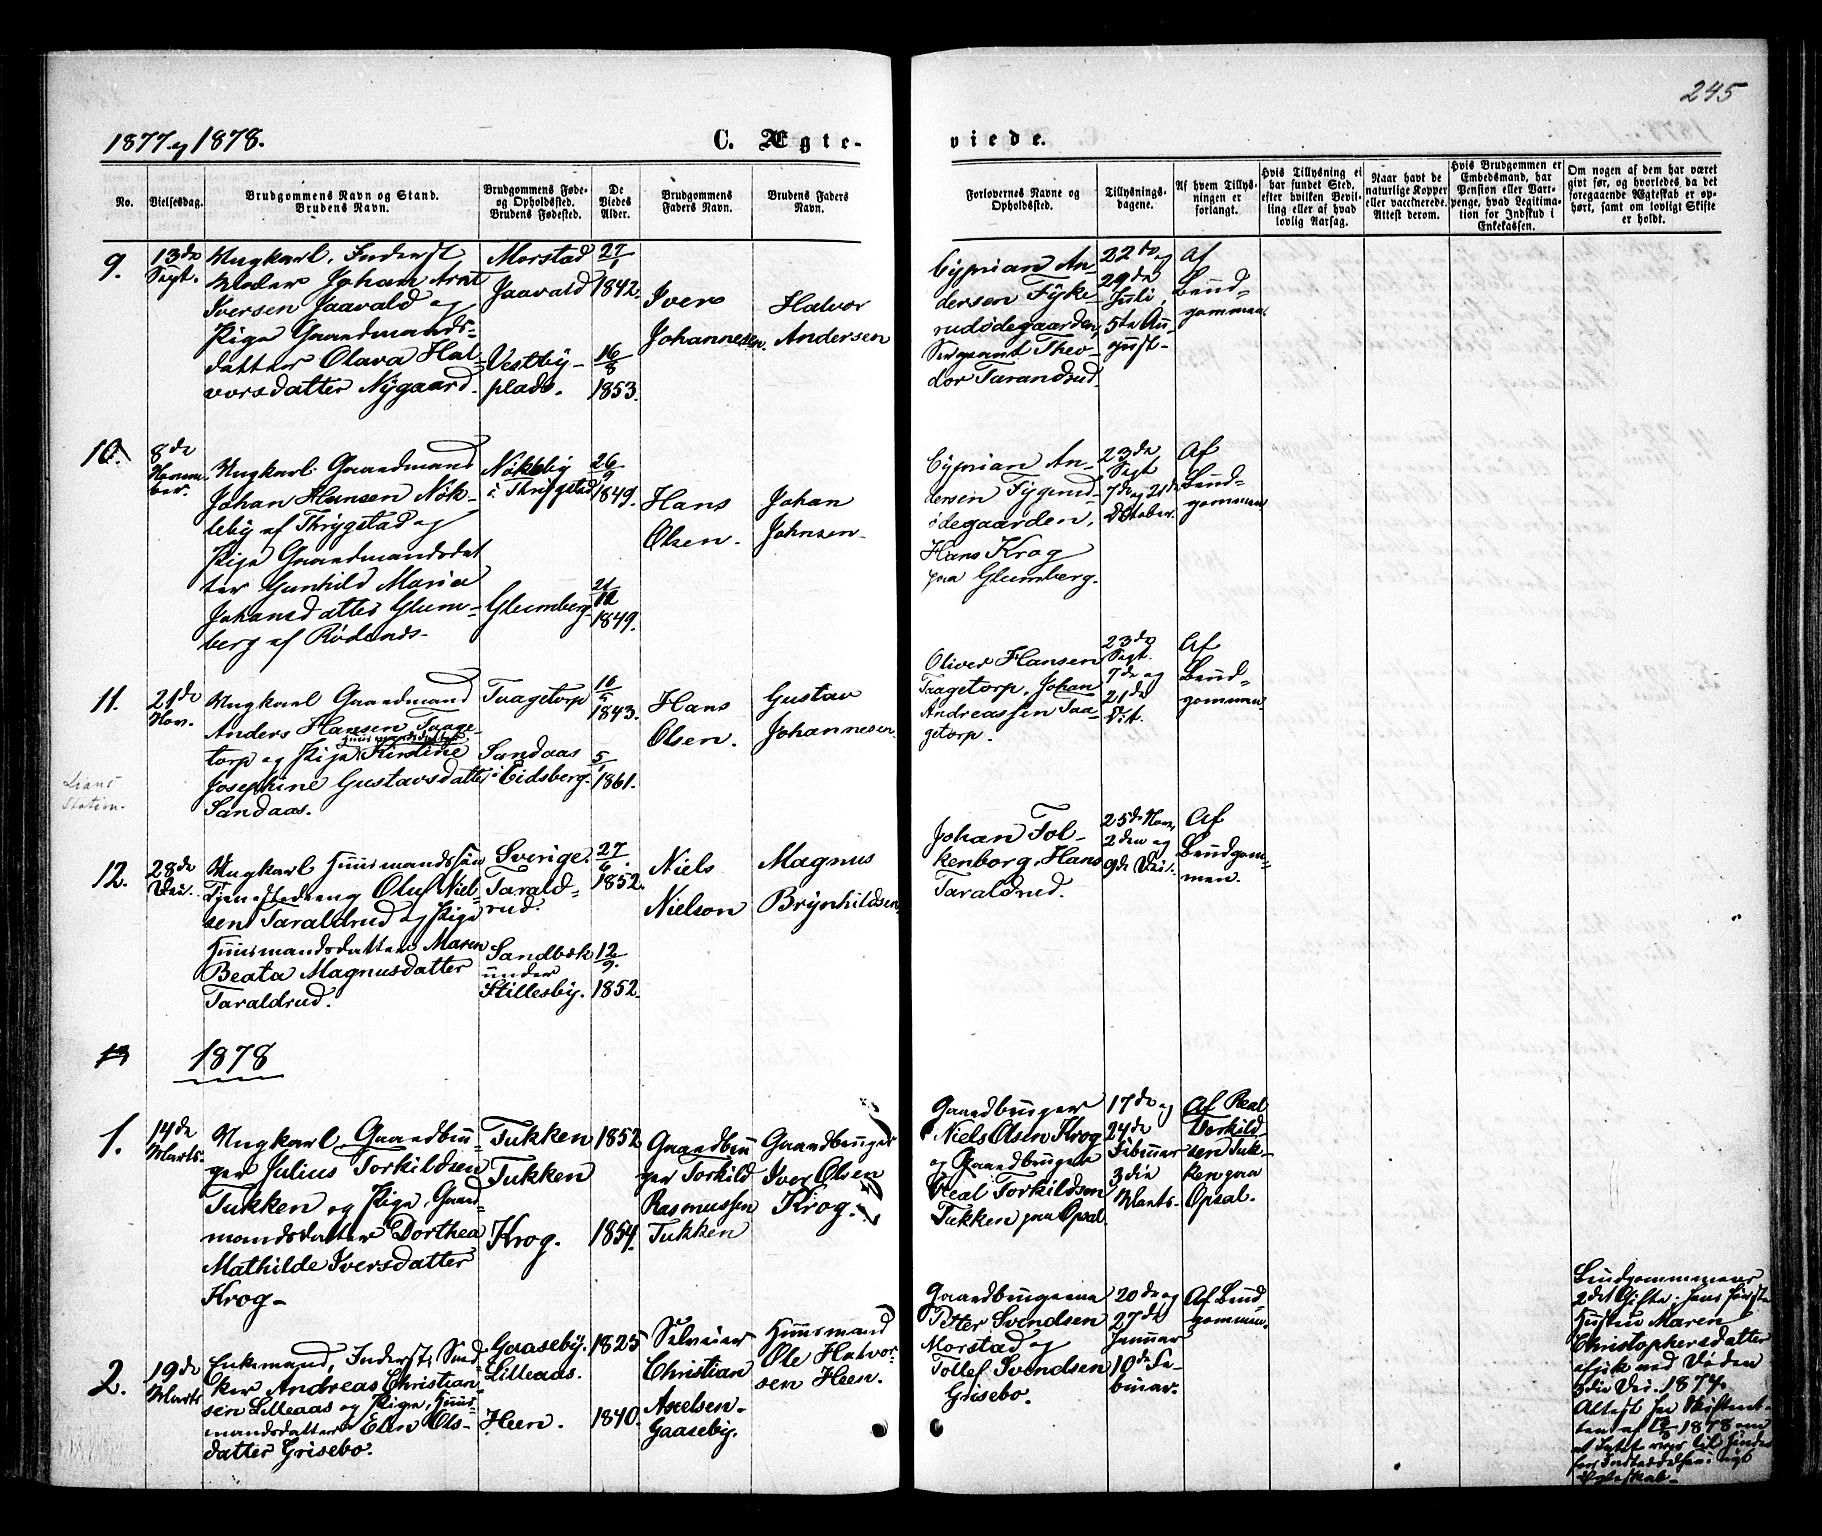 245
1877 og 1878.
C. Ægte-
viede.
No.
Vielsesdag.
Brudgommens Navn og Stand.
Brudens Navn.
Brudgommens Føde-
og Opholdssted.
Brudens Fødested.
De
Viedes
Alder.
Brudgommens
Faders Navn.
Brudens Faders
Navn.
Forlovernes Navne og
Opholdssted.
Tillysnings-
dagene.
Af hvem Tillys-
ningen er
forlangt.
Hvis Tillysning ei
har fundet Sted,
efter hvilken Bevil-
ling eller af hvad
lovlig Aarsag.
Naar havt de
naturlige Kopper
eller vaccinerede.
Attest derom.
Hvis Brudgommen er
Embedsmand, har
Pension eller Vart-
penge, hvad Legitima-
tion for Indskud i
Enkekassen.
Om nogen af dem har været
gift før, og hvorledes da det
foregaaende Ægteskab er op-
hørt, samt om lovligt Skifte
er holdt.
9.
13de
Sept.
Ungkarl, Inderst,
Johan Arnt
Iversen Jaavald og
Pige Gaardmands-
datter Olava Hal-
vorsdatter Nygaard.
Morstad
Jaavald
Vestby-
plads.
27/1
1842.
16/8
1853.
Iver
Johannesen.
Halvor
Andersen
Cyprian An-
dersen Fyke-
rudødegaarden,
Sergeant Theo-
dor Tarandrud.
22de og
29de
Juli,
5te Au-
gust.
Af
Brud-
gommen.
10.
8de
Novem-
ber.
Ungkarl Gaardmand
Johan Hansen Nøk-
leby af Thrygstad og
Pige Gaardmandsdat
ter Gunhild Maria
Johansdatter Glem-
berg af Rødenæs.
Nøkleby
i Thrygstad
Glemberg
26/9
1849.
1849.
Hans
Olsen.
Johan
Johnsen.
Cyprian An-
dersen Fygerud-
ødegaarden,
Hans Krog
paa Glemberg.
23de
Sept
7de og 21de
Oktober.
Af
Brud-
gommen
11.
21de
Nov.
Ungkarl Gaardmand
Anders Hansen Traage-
torp og Pige Huusmandsdatter Kirstine
Josephine Gustavsdatter
Sandaas.
Traagetorp
Sandaas
i Eidsberg.
10/5
1843.
5/1
1861.
Hans
Olsen.
Gustav
Johannesen.
Oliver Hansen
Traagetorp, Johan
Andreassen Taa-
getorp.
23de
Sept.
7de og
21de
Okt.
Af
Brud-
gommen.
Lians
Station.
12.
28de
Dec.
Ungkarl Huusmandssøn
Tjenestedreng Oluf Niel-
sen Taraldrud og Pige
Huusmandsdatter Maren
Beata Magnusdatter
Taraldrud.
Sverige.
Tarald-
rud.
Sandbæk
under
Stillesby.
27/6
1852.
12/9.
1852.
Niels
Nielson
Magnus
Brynhildsen.
Johan Fol-
kenborg, Hans
Taraldrud.
25de Nov,
2den og
9de Dec.
Af
Brudgom-
men.
13
1878
1.
14de
Marts.
Ungkarl, Gaardbru-
ger Julius Torkildsen
Tukken og Pige, Gaard-
mandsdatter Dorthea
Mathilde Iversdatter
Krog.
Tukken
Tukken
Krog.
1852
1854.
Gaardbru
ger Torkild
Rasmussen
Tukken
Gaardbruger
Iver Olsen
Krog.
Gaardbruger
Niels Olsen Krog
og Gaardbruger
Real Torkildsen
Tukken paa Opsal.
17de og
24de
Februar
3die
Marts.
Af Real
Torkild-
sen Tuk-
ken paa
Opsal.
2.
19de
Marts
Enkemand, Inderst, Sned-
ker Andreas Christian-
sen Lilleaas og Pige, Huus-
mandsdatter Elen Ols-
datter Grisebo.
Gaaseby.
Lilleaas.
Heen.
1825
1840.
Selveier
Christian
Axelsen
Gaaseby.
Huusmand
Ole Halvor-
sen Heen.
Gaardbrugerne
Petter Svendsen
Morstad og
Tollef Svendsen
Grisebo.
20de og
27de
Januar
10de Fe-
bruar.
Af Brud-
gommen.
Brudgommens
2det Gifte; hans første
Hustru Maren
Christophersdatter
afgik ved Døden
3die Dec. 1874.
Attest fra Skifteret-
ten af 1878 om
at Intet var til Hinder
for Indtrædelse i nyt
Ægteskab.